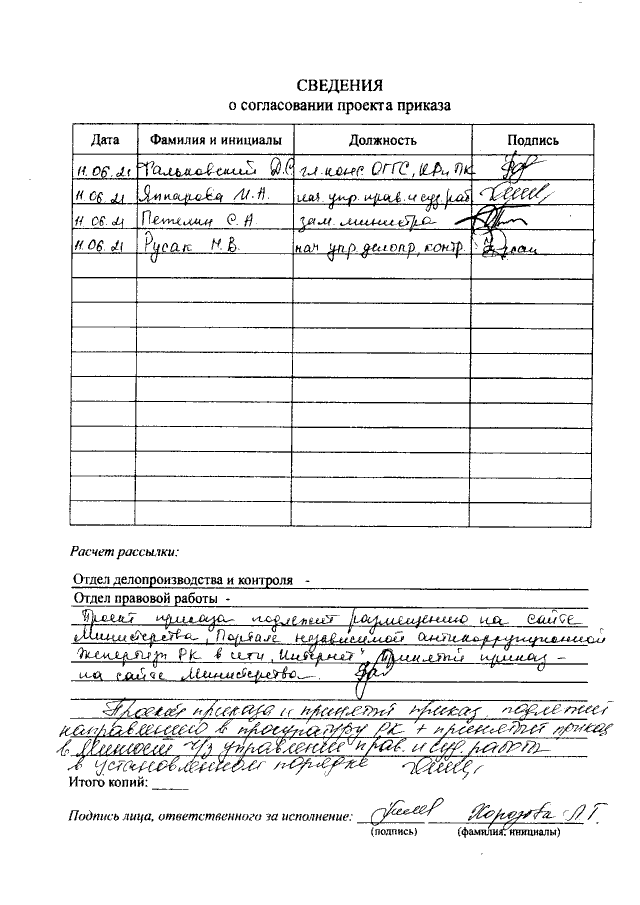 СВЕДЕНИЯ
о согласовании проекта приказа
Дата Фамилия и инициалы Должность Подпись
11.06.21 Фальковский Д.С. гл. конс. ОГГС, КР и ПК
11.06.21 Яппарова И.А. нач. упр. прав. и суд. раб.
11.06.21 Петелин С.А. зам. министра
11.06.21 Русак Н.В. нач. упр. делопр., контр.
Расчет рассылки:
Отдел делопроизводства и контроля -
Отдел правовой работы -
Проект приказа подлежит размещению на сайте
Министерства, Портале независимой антикоррупционной
экспертизы РК в сети „Интернет" Принятый приказ –
на сайте Министерства.
Проект приказа и принятый приказ подлежит
направлению в прокуратуру РК + принятый приказ
в Минюст ч/з управление прав. и суд. работы
в установленном порядке
Итого копий:
Подпись лица, ответственного за исполнение: Л.Г.
(подпись) (фамилия, инициалы)